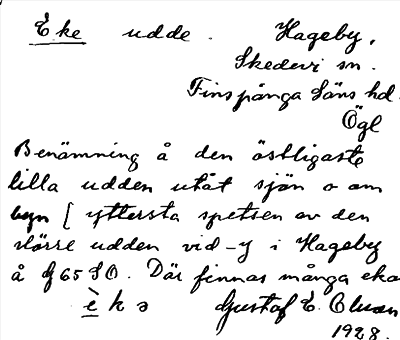 Eke udde. Hageby,
Skedevi sn.
Finspånga läns hd.
Ögl
Benämning å den östligaste
lilla udden utåt sjön o om
byn [ yttersta spetsen av den
större udden vid -y i Hageby
å G 65 SO. Där finnas många eka
è k ə Gustaf E.
1928.